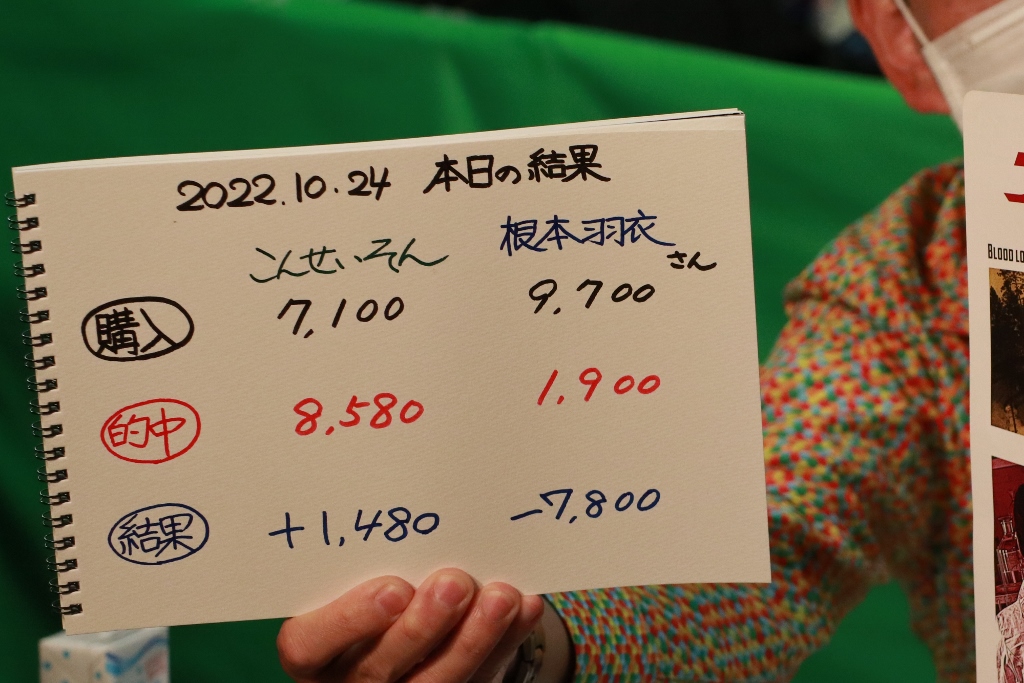 2022.10.24 本日の結果
こんせいそん 根本羽衣さん
購入 7,100 9,700
的中 8,580 1,900
結果 +1,480 -7,800
BLOOD LO